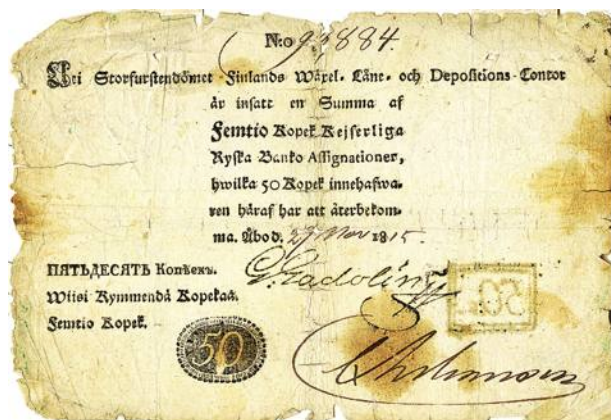 N:o 93,884.
Uti Storfurstendömet Finlands Wäxel- Låne- och Depositions-Contor
är insatt en Summa af
Femtio Kopek Kejserliga
Ryska Banko Assignationer,
hwilka 50 Kopek innehafwa-
ren häraf har att återbekom-
ma. Åbo d. 27 Nov 1815.
G. Gadolin
ПЯТЬДЕСЯТЬ Копѣекъ.
Wiisi Kymmendä Kopekaa.
Femtio Kopek.
50
50